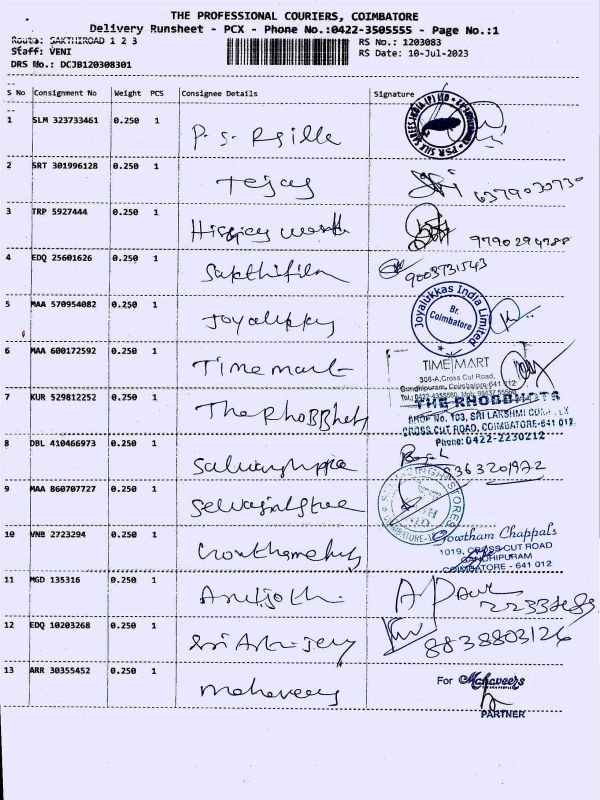 THE PROFESSIONAL COURIERS, COIMBATORE
Delivery Runsheet - PCX - Phone No.:0422-3505555 - Page No.:1
Route: SAKTHIROAD 1 2 3
RS No.: 1203083
Staff: VENI
RS Date: 10-Jul-2023
DRS No.: DCJB120308301
S No Consignment No Weight PCS Consignee Details Signature
1 SLM 323733461 0.250 1 P. S. R Silk
PSR SILK SAREES INDIA (P) LTD
2 SRT 301996128 0.250 1 Tejas
6379030730
3 TRP 5927444 0.250 1
9790294788
4 EDQ 25601626 0.250 1 Sakthifilm
9003731543
5 MAA 570954082 0.250 1 Joyalukkas
Joyalukkas India Limited
Br.
Coimbatore
6 MAA 600172592 0.250 1 Time mart
TIME MART
306-A, Cross Cut Road,
Gandhipuram, Coimbatore-641 012
7 KUR 529812252 0.250 1
SHOP No. 103, SRI LAKSHMI COMPLEX
CROSS CUT ROAD, COIMBATORE-641 012.
Phone: 0422-2230212
8 DBL 410466973 0.250 1
9 MAA 860707727 0.250 1
10 VNB 2723294 0.250 1
Gowtham Chappals
1019, CROSS CUT ROAD
GANDHIPURAM
COIMBATORE - 641 012
11 MGD 135316 0.250 1 Arutjothi
12 EDQ 10203268 0.250 1
8838803126
13 ARR 30355452 0.250 1 Mahaveers
For Mahaveers
PARTNER